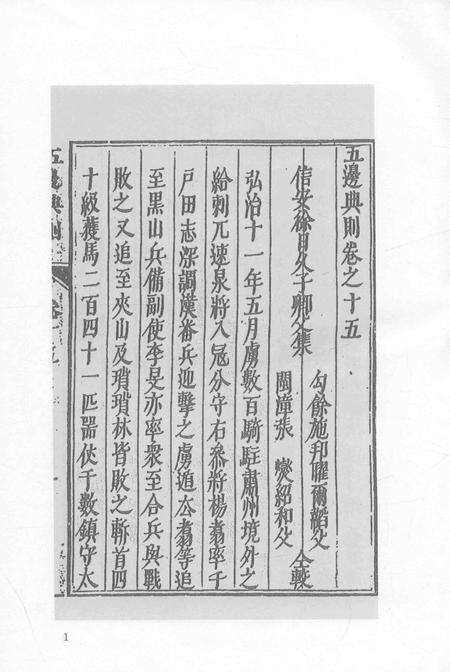 五邊典則卷之十五
信安徐日久子卿父集
勾餘施邦曜爾韜父
閩漳張 燮紹和父
仝較
弘治十一年五月虜數百騎駐肅州境外之
給刺兀速泉將入冦分守右叅將楊翥率千
戶田志深調漢畨兵迎擊之虜遁去翥等追
至黒山兵備副使李旻亦率衆至合兵與戰
敗之又追至夾山及瑣瑣林皆敗之斬首四
十級獲馬二百四十一匹噐仗千數鎮守太
五邊典則
1